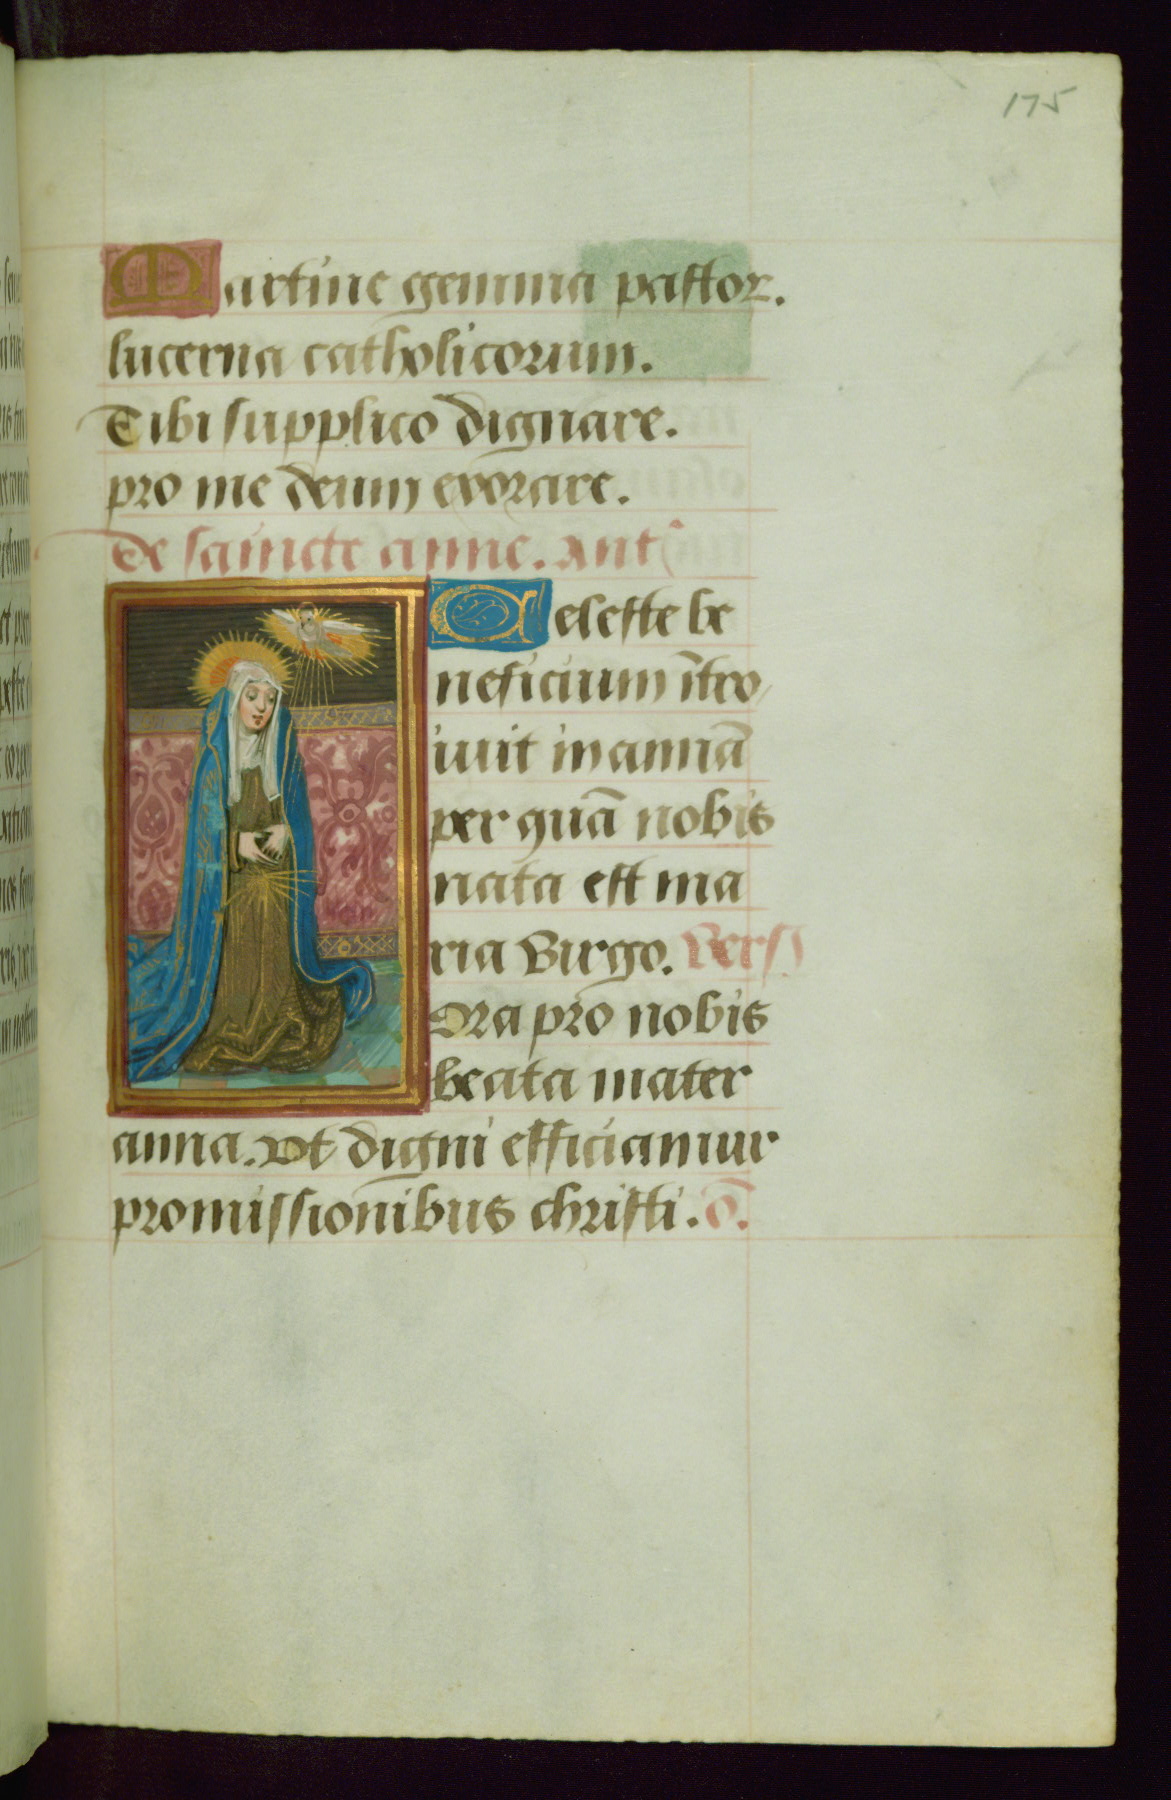 175
Martine gemma pastor.
lucerna catholicorum.
Tibi supplico dignare.
pro me deum exorare.
De saincte anne. Ant
Celeste be
neficium ītro
iuit in annā
per quā nobis
nata est ma
ria Virgo. Vers
Ora pro nobis
beata mater
anna. Vt digni efficiamur
promissionibus christi. ō.